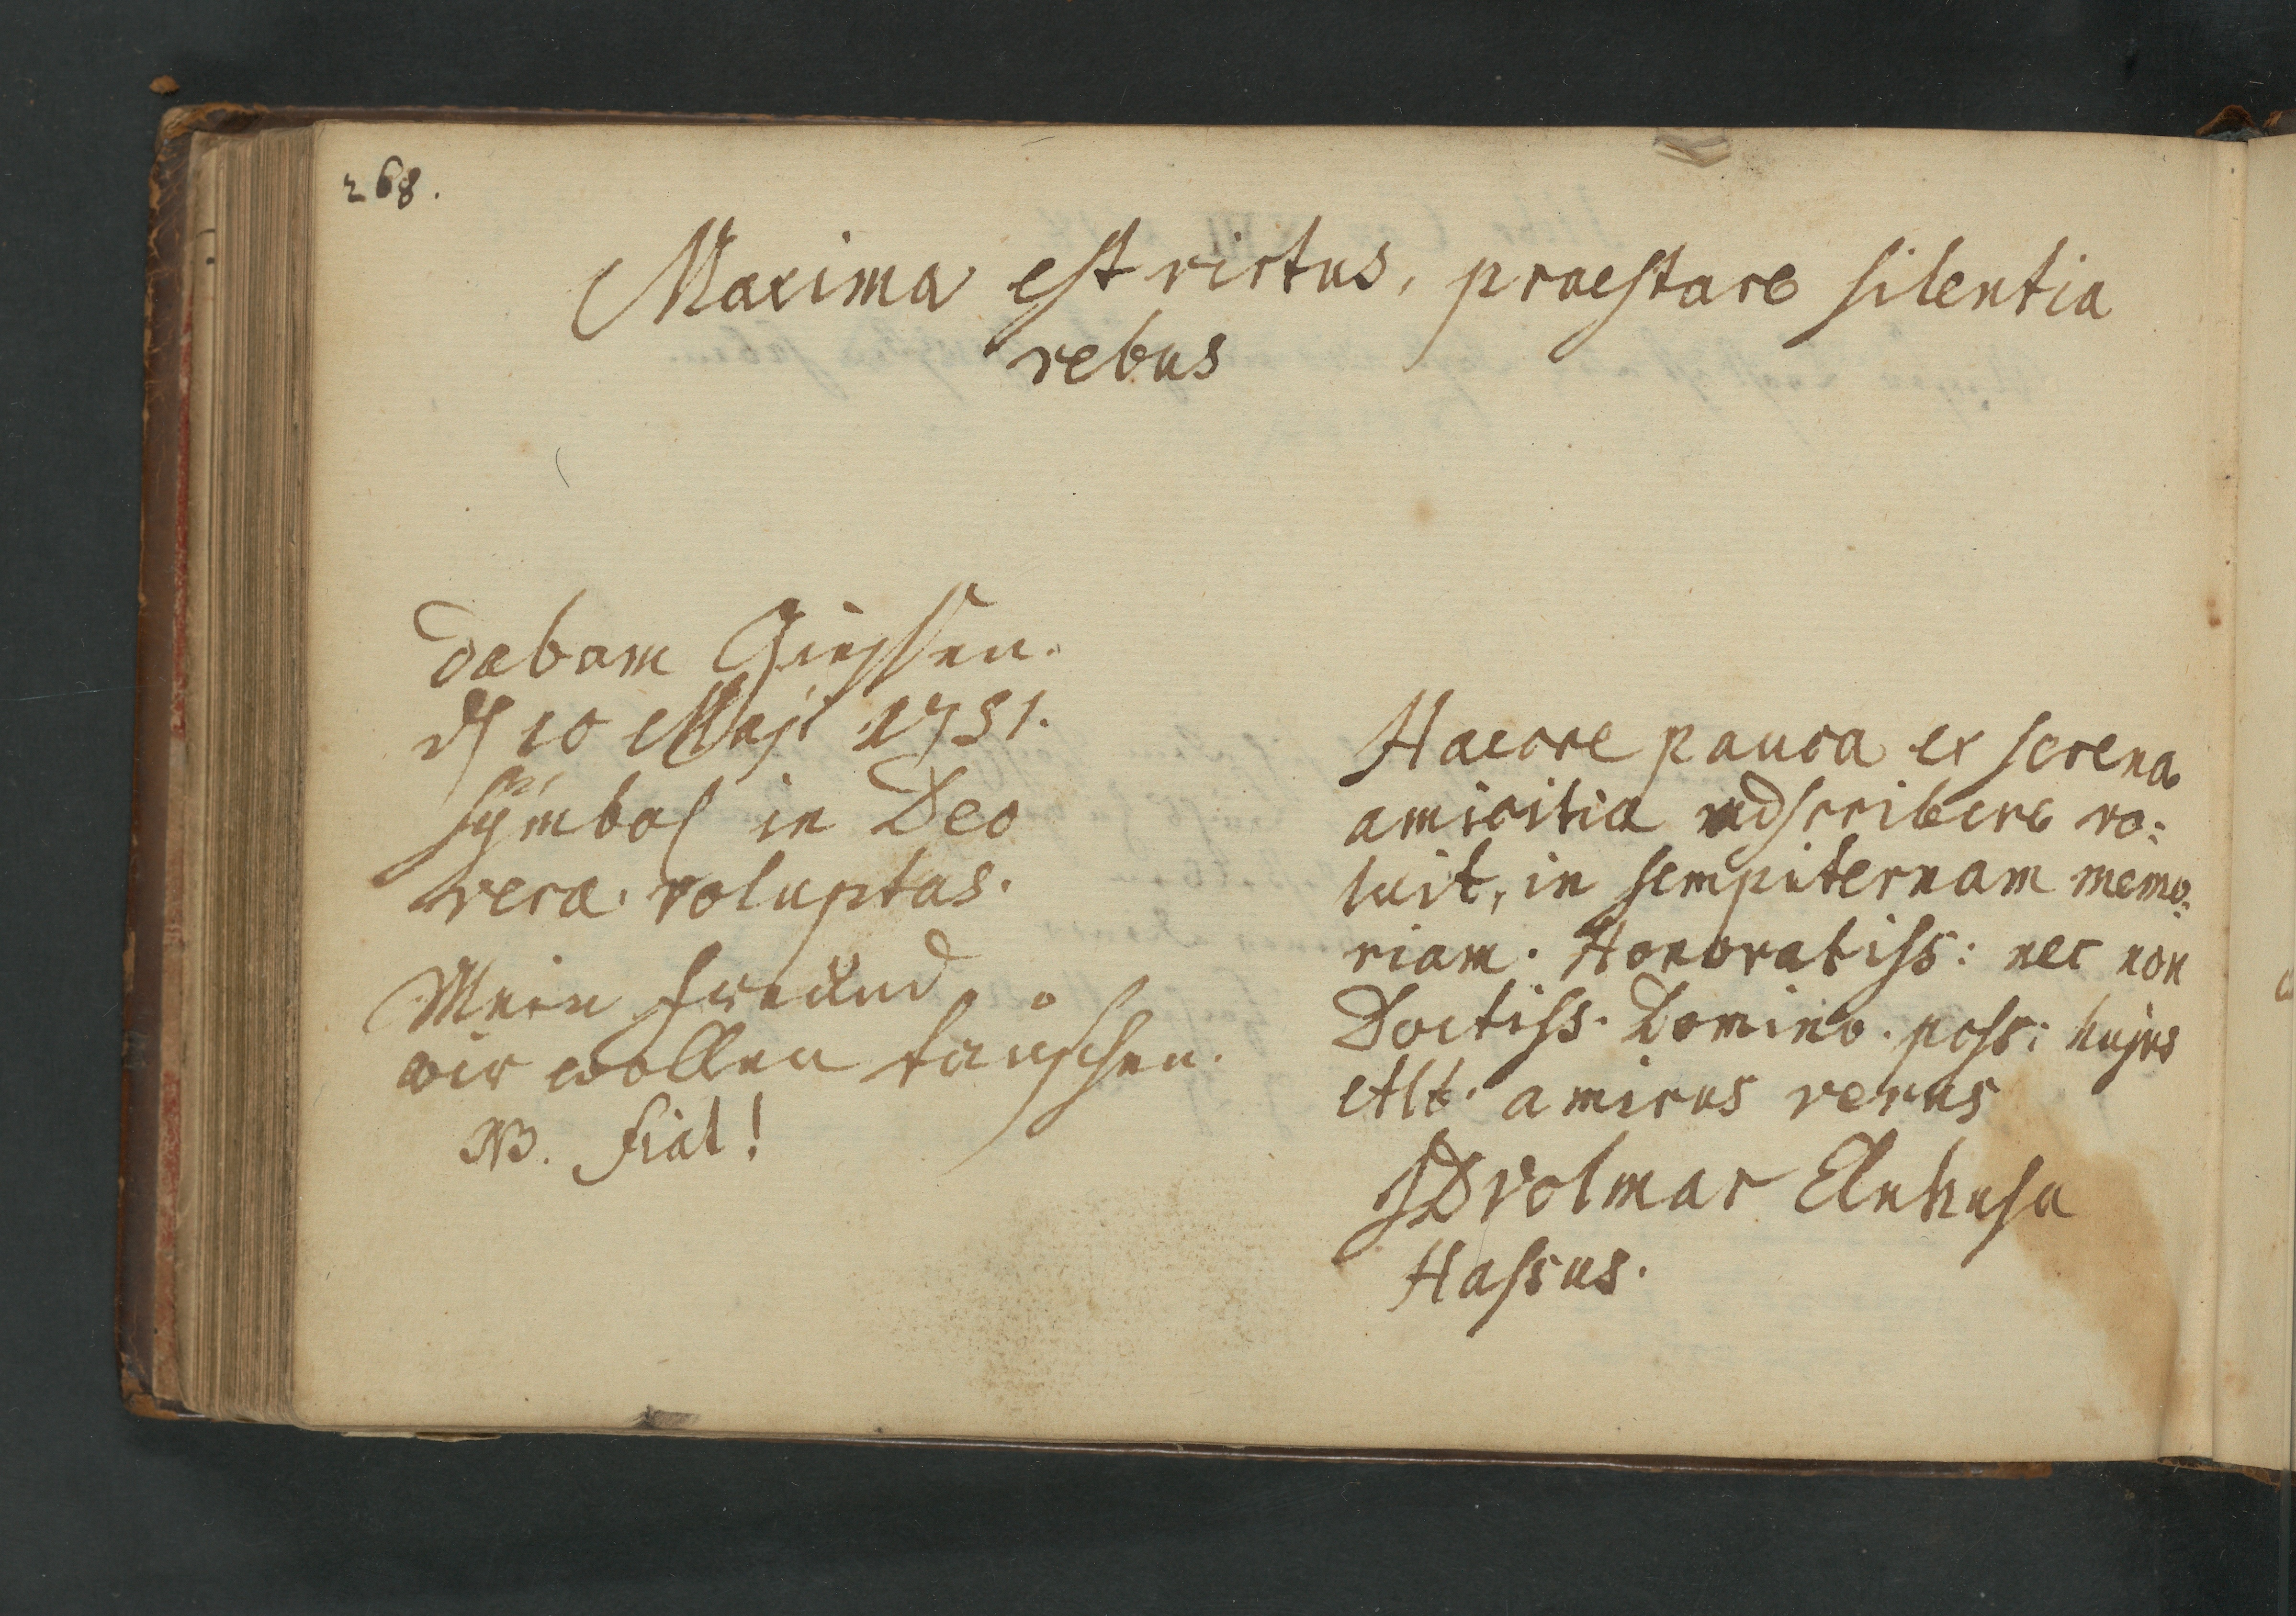 268.
Maxima est virtus, praestare silentia
rebus
dabam Giessen.
d 10 Maji 1751.
Symbol in Deo
vera voluptas.
Mein freünd
wir wollen taüschen.
NB. fiat!
Haecce pauca ex serena
amicitia adscribere vo:
luit, in sempiternam memo:
riam. Honoratiss: nec non
Doctiss. Domino. poss: hujus
Alb. amicus verus
JD Volmar
Hassus.